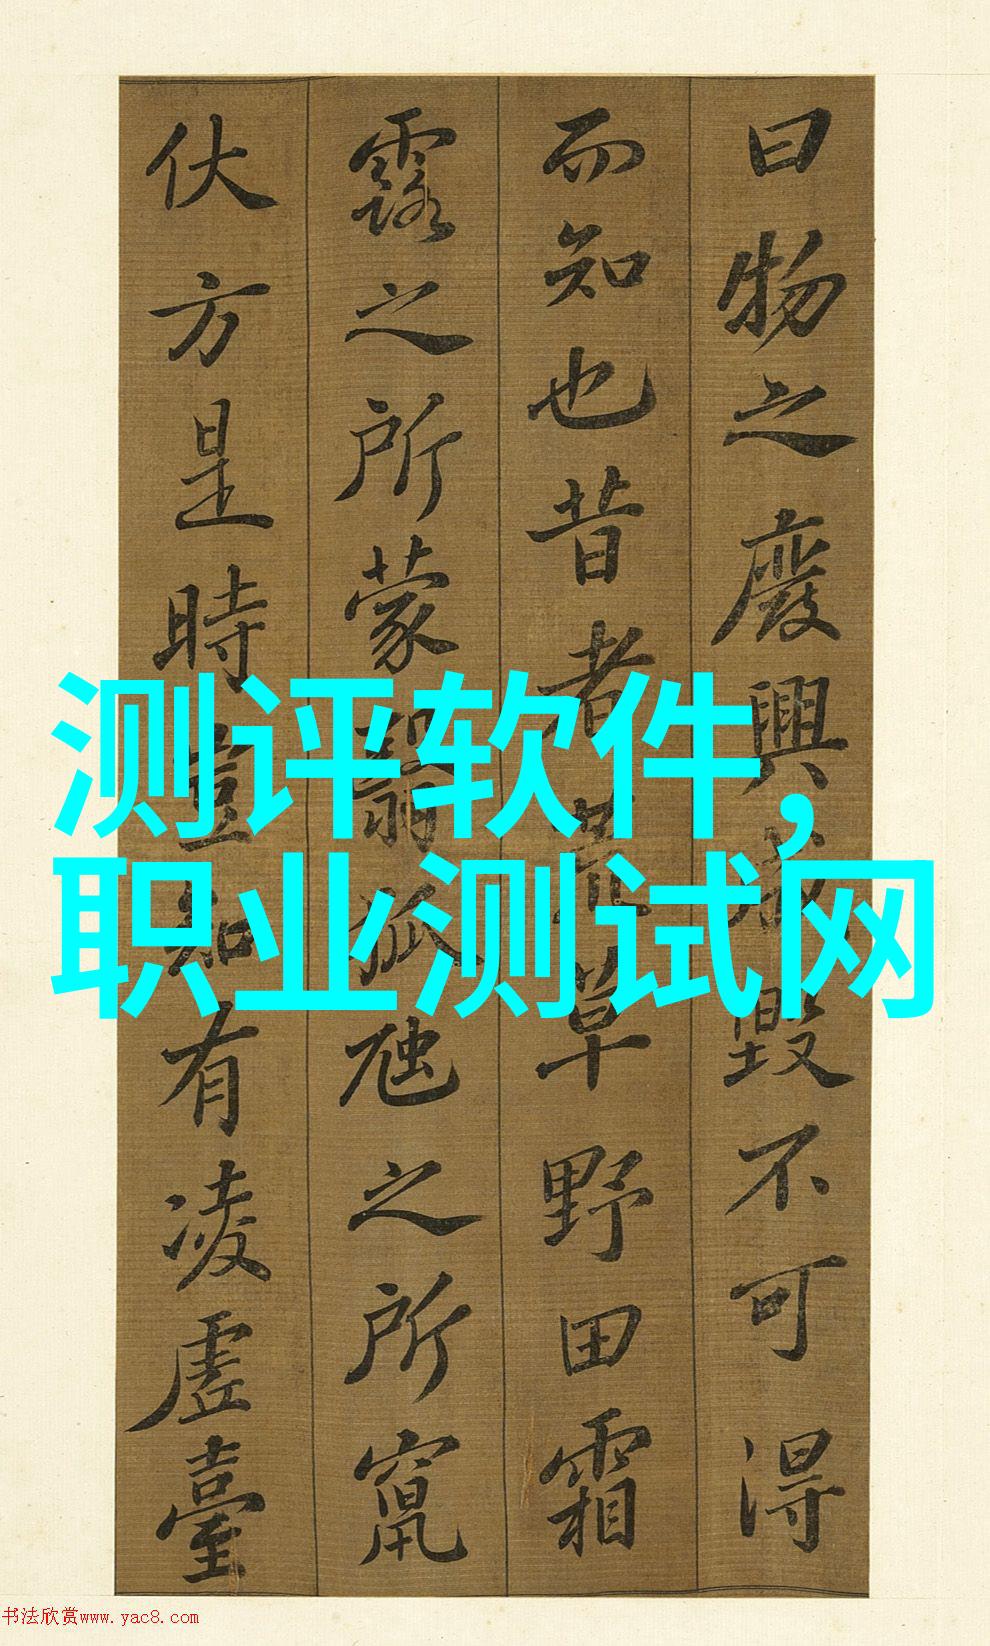 曰物之廢興成毀不可得
而知也昔者荒草野田霜
露之所蒙翳狐虺之所竄
伏方是時豈知有凌虛臺
测评软件，
职业测试网
书法欣赏www.yac8.com